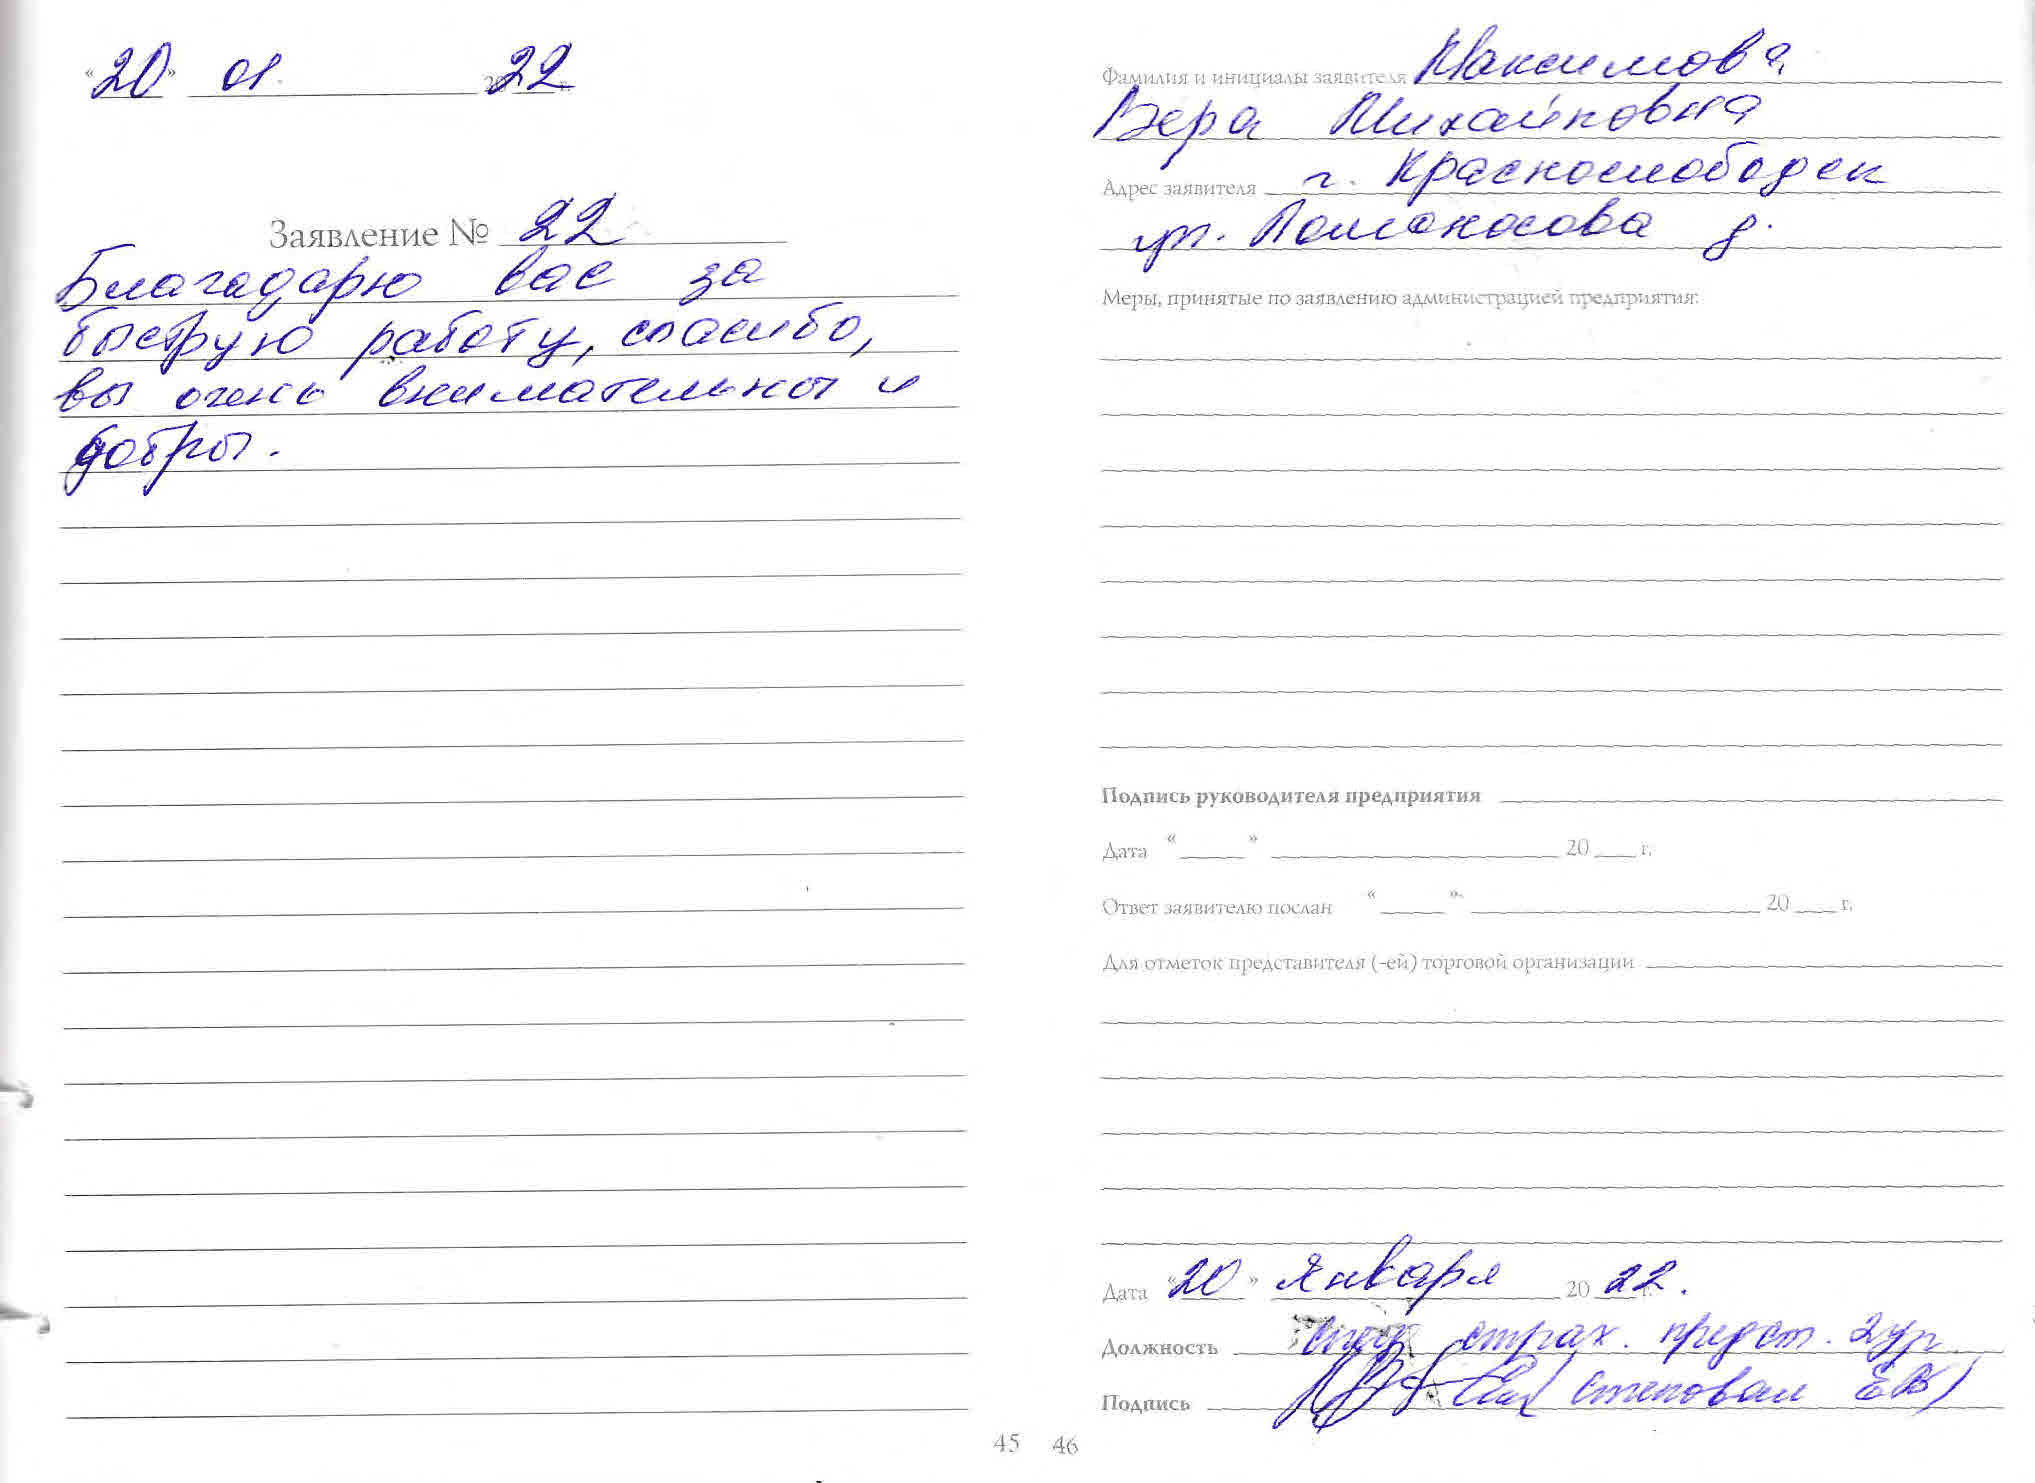 «20» 01. 2022 г.
Заявление № 22
Благадарю вас за
быструю работу, спасибо,
вы очень внимательны и
добры.
45
Фамилия и инициалы заявителя Максимова
Вера Михайловна
Адрес заявителя г. Краснослободск
ул. Ломоносова д.
Меры, принятые по заявлению администрацией предприятия:
Подпись руководителя предприятия
Дата «____» ____ 20 ___ г.
Ответ заявителю послан «____» ____ 20 ___ г.
Для отметок представителя (-ей) торговой организации
Дата «20» Января 20 22.
Должность страх. предст. 2 ур.
Подпись
46